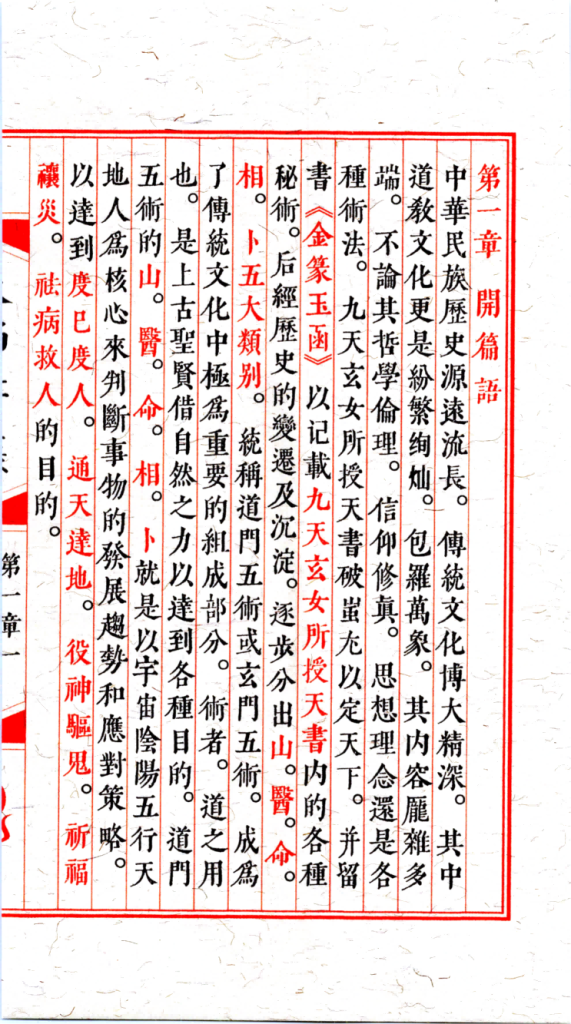 第一章 開篇語
中華民族歷史源遠流長。傳統文化博大精深。其中
道教文化更是紛繁绚灿。包羅萬象。其内容龐雜多
端。不論其哲學倫理。信仰修真。思想理念還是各
種術法。九天玄女所授天書破蚩尤以定天下。并留
書《金篆玉函》以记載九天玄女所授天書内的各種
秘術。后經歷史的變遷及沉淀。逐步分出山。醫。命。
相。卜五大類别。統稱道門五術或玄門五術。成爲
了傳統文化中極爲重要的組成部分。術者。道之用
也。是上古聖賢借自然之力以達到各種目的。道門
五術的山。醫。命。相。卜就是以宇宙陰陽五行天
地人爲核心來判斷事物的發展趨勢和應對策略。
以達到度已度人。通天達地。役神驅鬼。祈福
禳災。祛病救人的目的。
第一章一